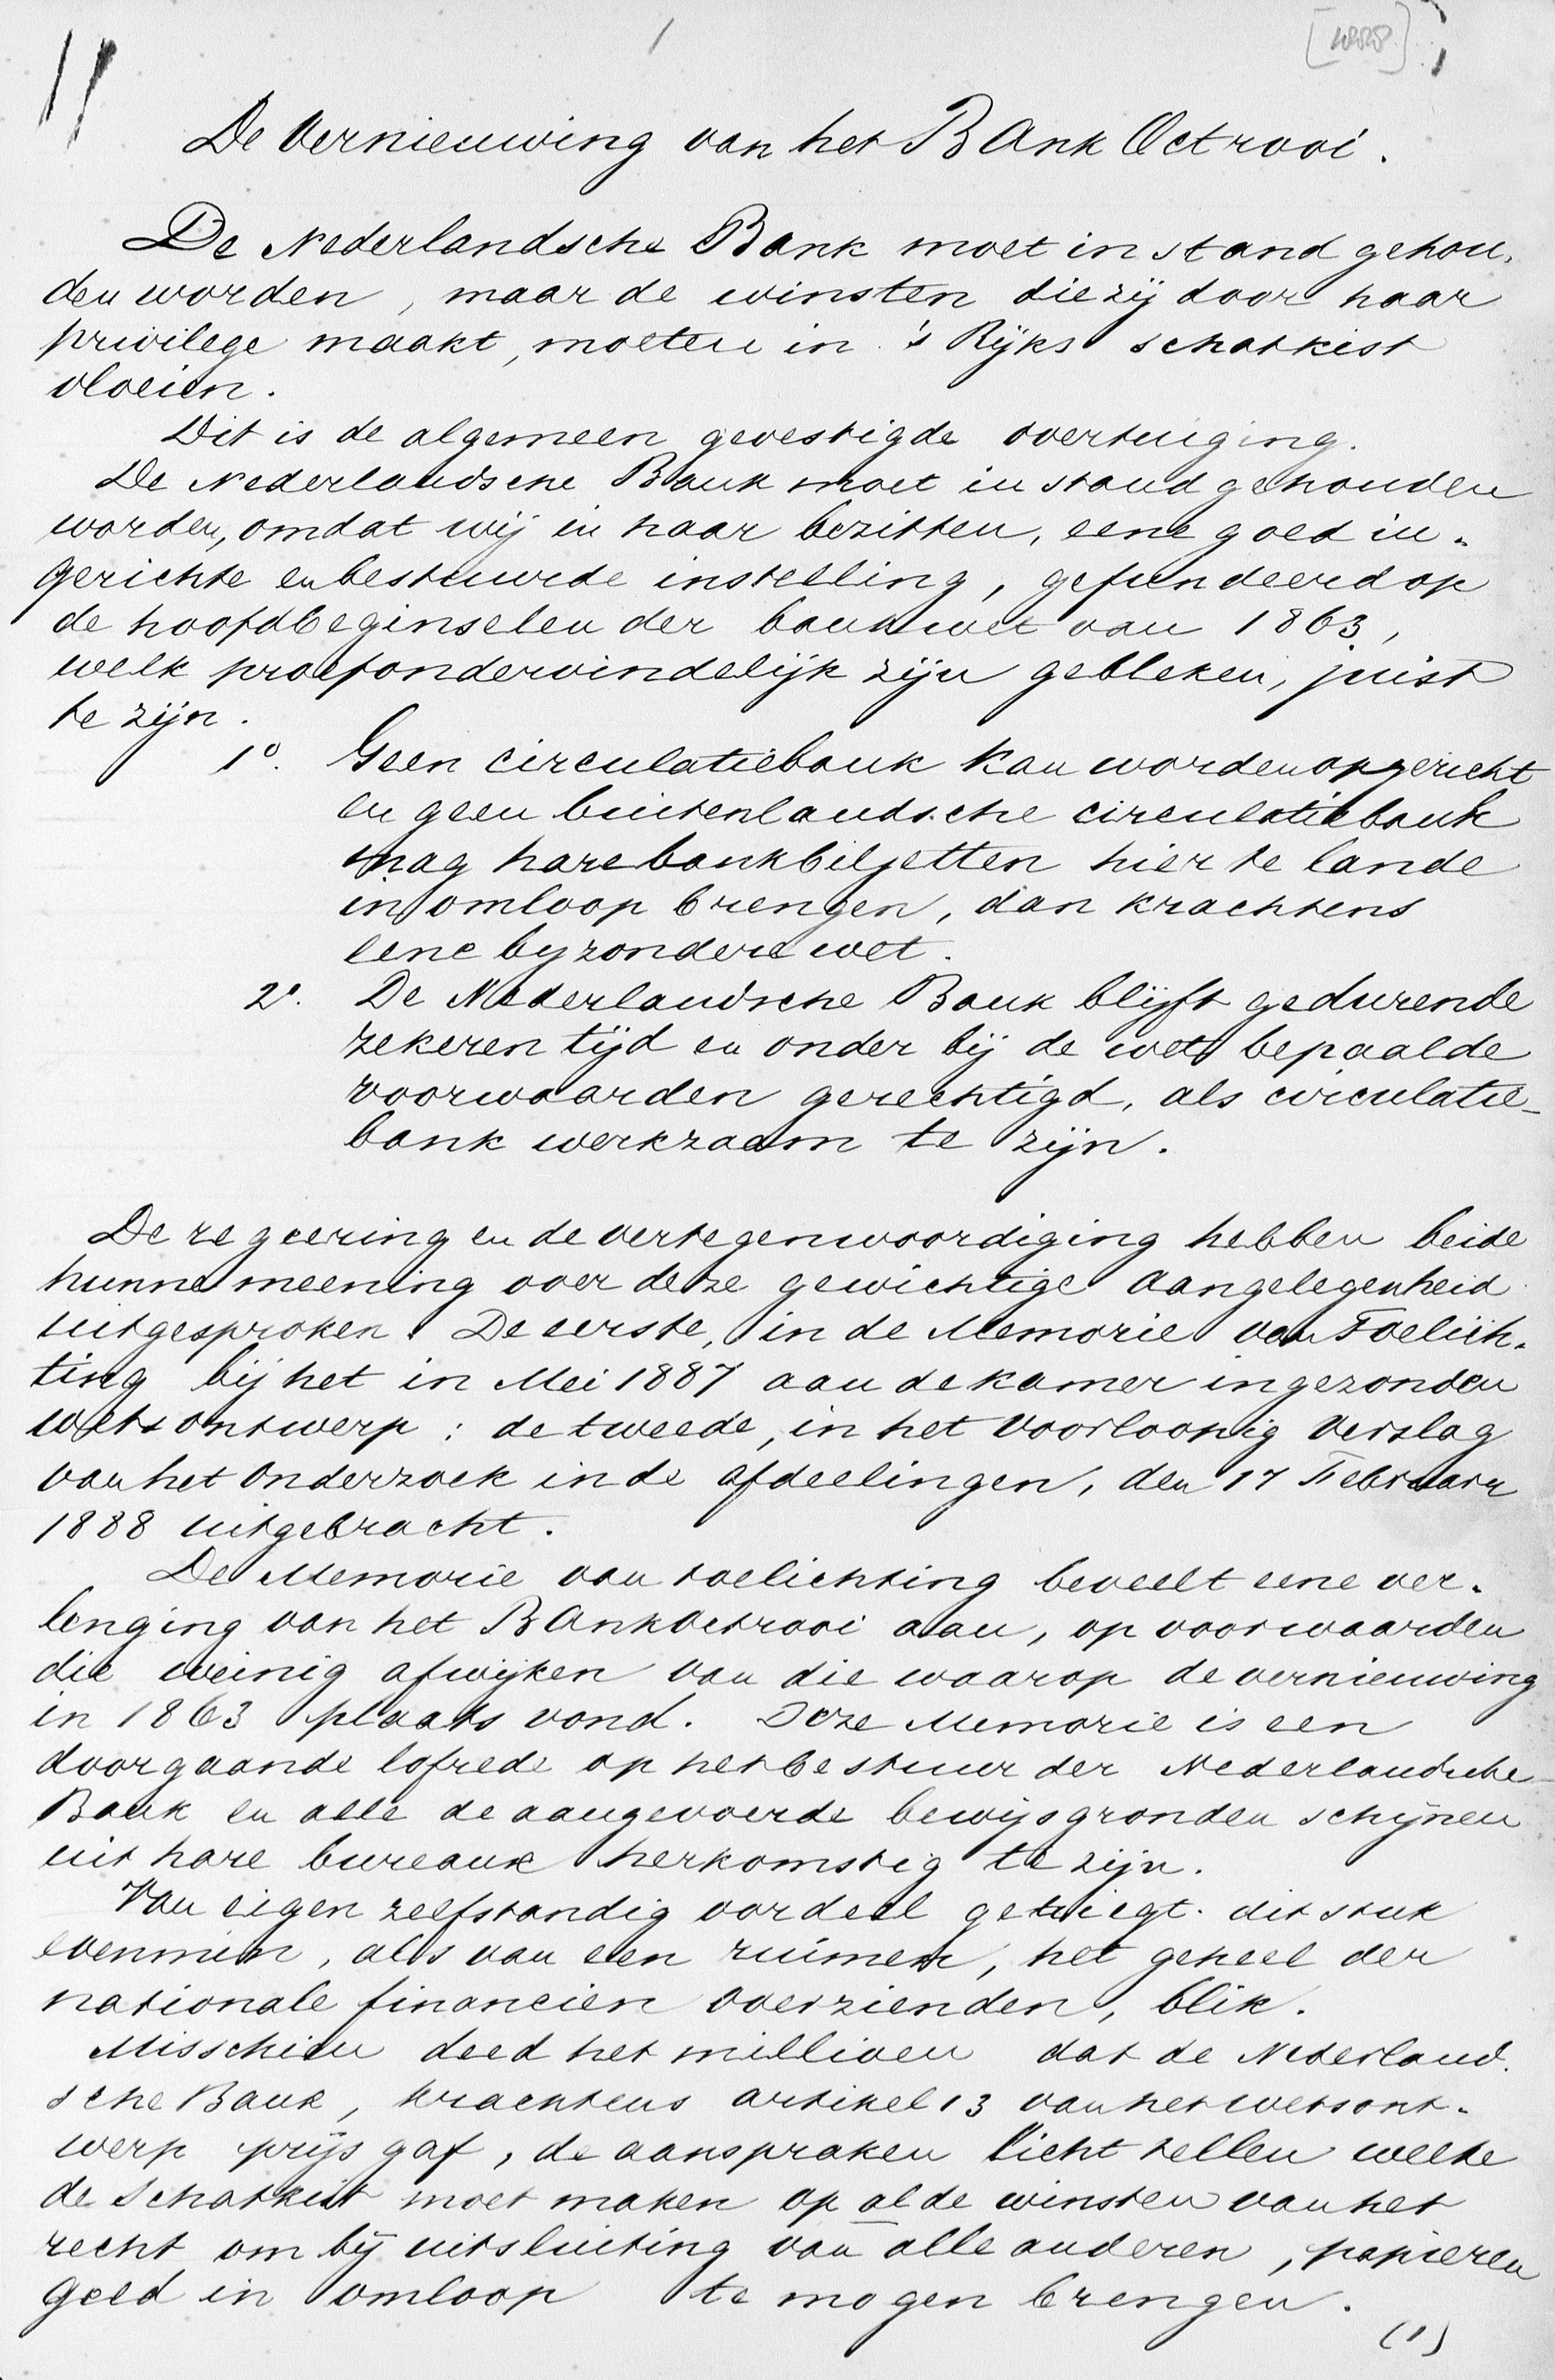 [1888]
De Vernieuwing van het Bank Octrooi.
De Nederlandsche Bank moet in stand gehou-
den worden, maar de winsten die zij door haar
privilege maakt, moeten in 's Rijks schatkist
vloeien.
Dit is de algemeen gevestigde overtuiging.
De Nederlandsche Bank moet in stand gehouden
worden, omdat wij in haar bezitten, eene goed in-
gerichte en bestuurde instelling, gefundeerd op
de hoofdbeginselen der bankwet van 1863,
welk proefondervindelijk zijn gebleken, juist
te zijn.
1o. Geen circulatiebank kan worden opgericht
en geen buitenlandsche circulatiebank
mag hare bankbiljetten hier te lande
in omloop brengen, dan krachtens
eene byzondere wet.
2o. De Nederlandsche Bank blijft gedurende
zekeren tijd en onder bij de wet bepaalde
voorwaarden gerechtigd, als circulatie-
bank werkzaam te zijn.
De regeering en de vertegenwoordiging hebben beide
hunne meening over deze gewichtige aangelegenheid
uitgesproken. De eerste, in de Memorie van Toelich-
ting bij het in Mei 1887 aan de kamer ingezonden
wetsontwerp: de tweede, in het Voorloopig Verslag
van het onderzoek in de afdeelingen, den 17 Februari
1888 uitgebracht.
De Memorie van toelichting beveelt eene ver-
lenging van het Bankoctrooi aan, op voorwaarden
die weinig afwijken van die waarop de vernieuwing
in 1863 plaats vond. Deze Memorie is een
doorgaande lofrede op het bestuur der Nederlandsche
Bank en alle de aangevoerde bewijsgronden schijnen
uit hare bureaux herkomstig te zijn.
Van eigen zelfstandig oordeel getuigt dit stuk
evenmin, als van een ruimen, het geheel der
nationale financien overzienden, blik.
Misschien deed het millioen dat de Nederland-
sche Bank, krachtens artikel 13 van het wetsont-
werp prijs gaf, de aanspraken licht tellen welke
de Schatkist moet maken op al de winsten van het
recht om bij uitsluiting van alle anderen, papieren
geld in omloop te mogen brengen.
(1)